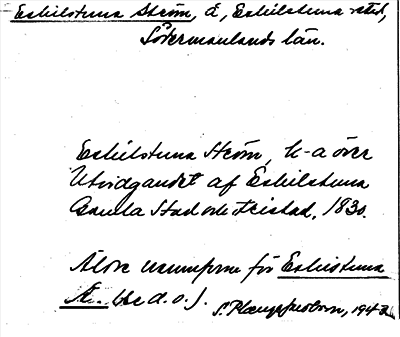 Eskilstuna Ström, å, Eskilstuna stad,
Södermanlands län.
Eskilstuna Ström, k-a över
Utvidgandet af Eskilstuna
Gamla Stad och Fristad, 1830.
Äldre namnform för Eskilstuna
Å. (se d. o.).
1942